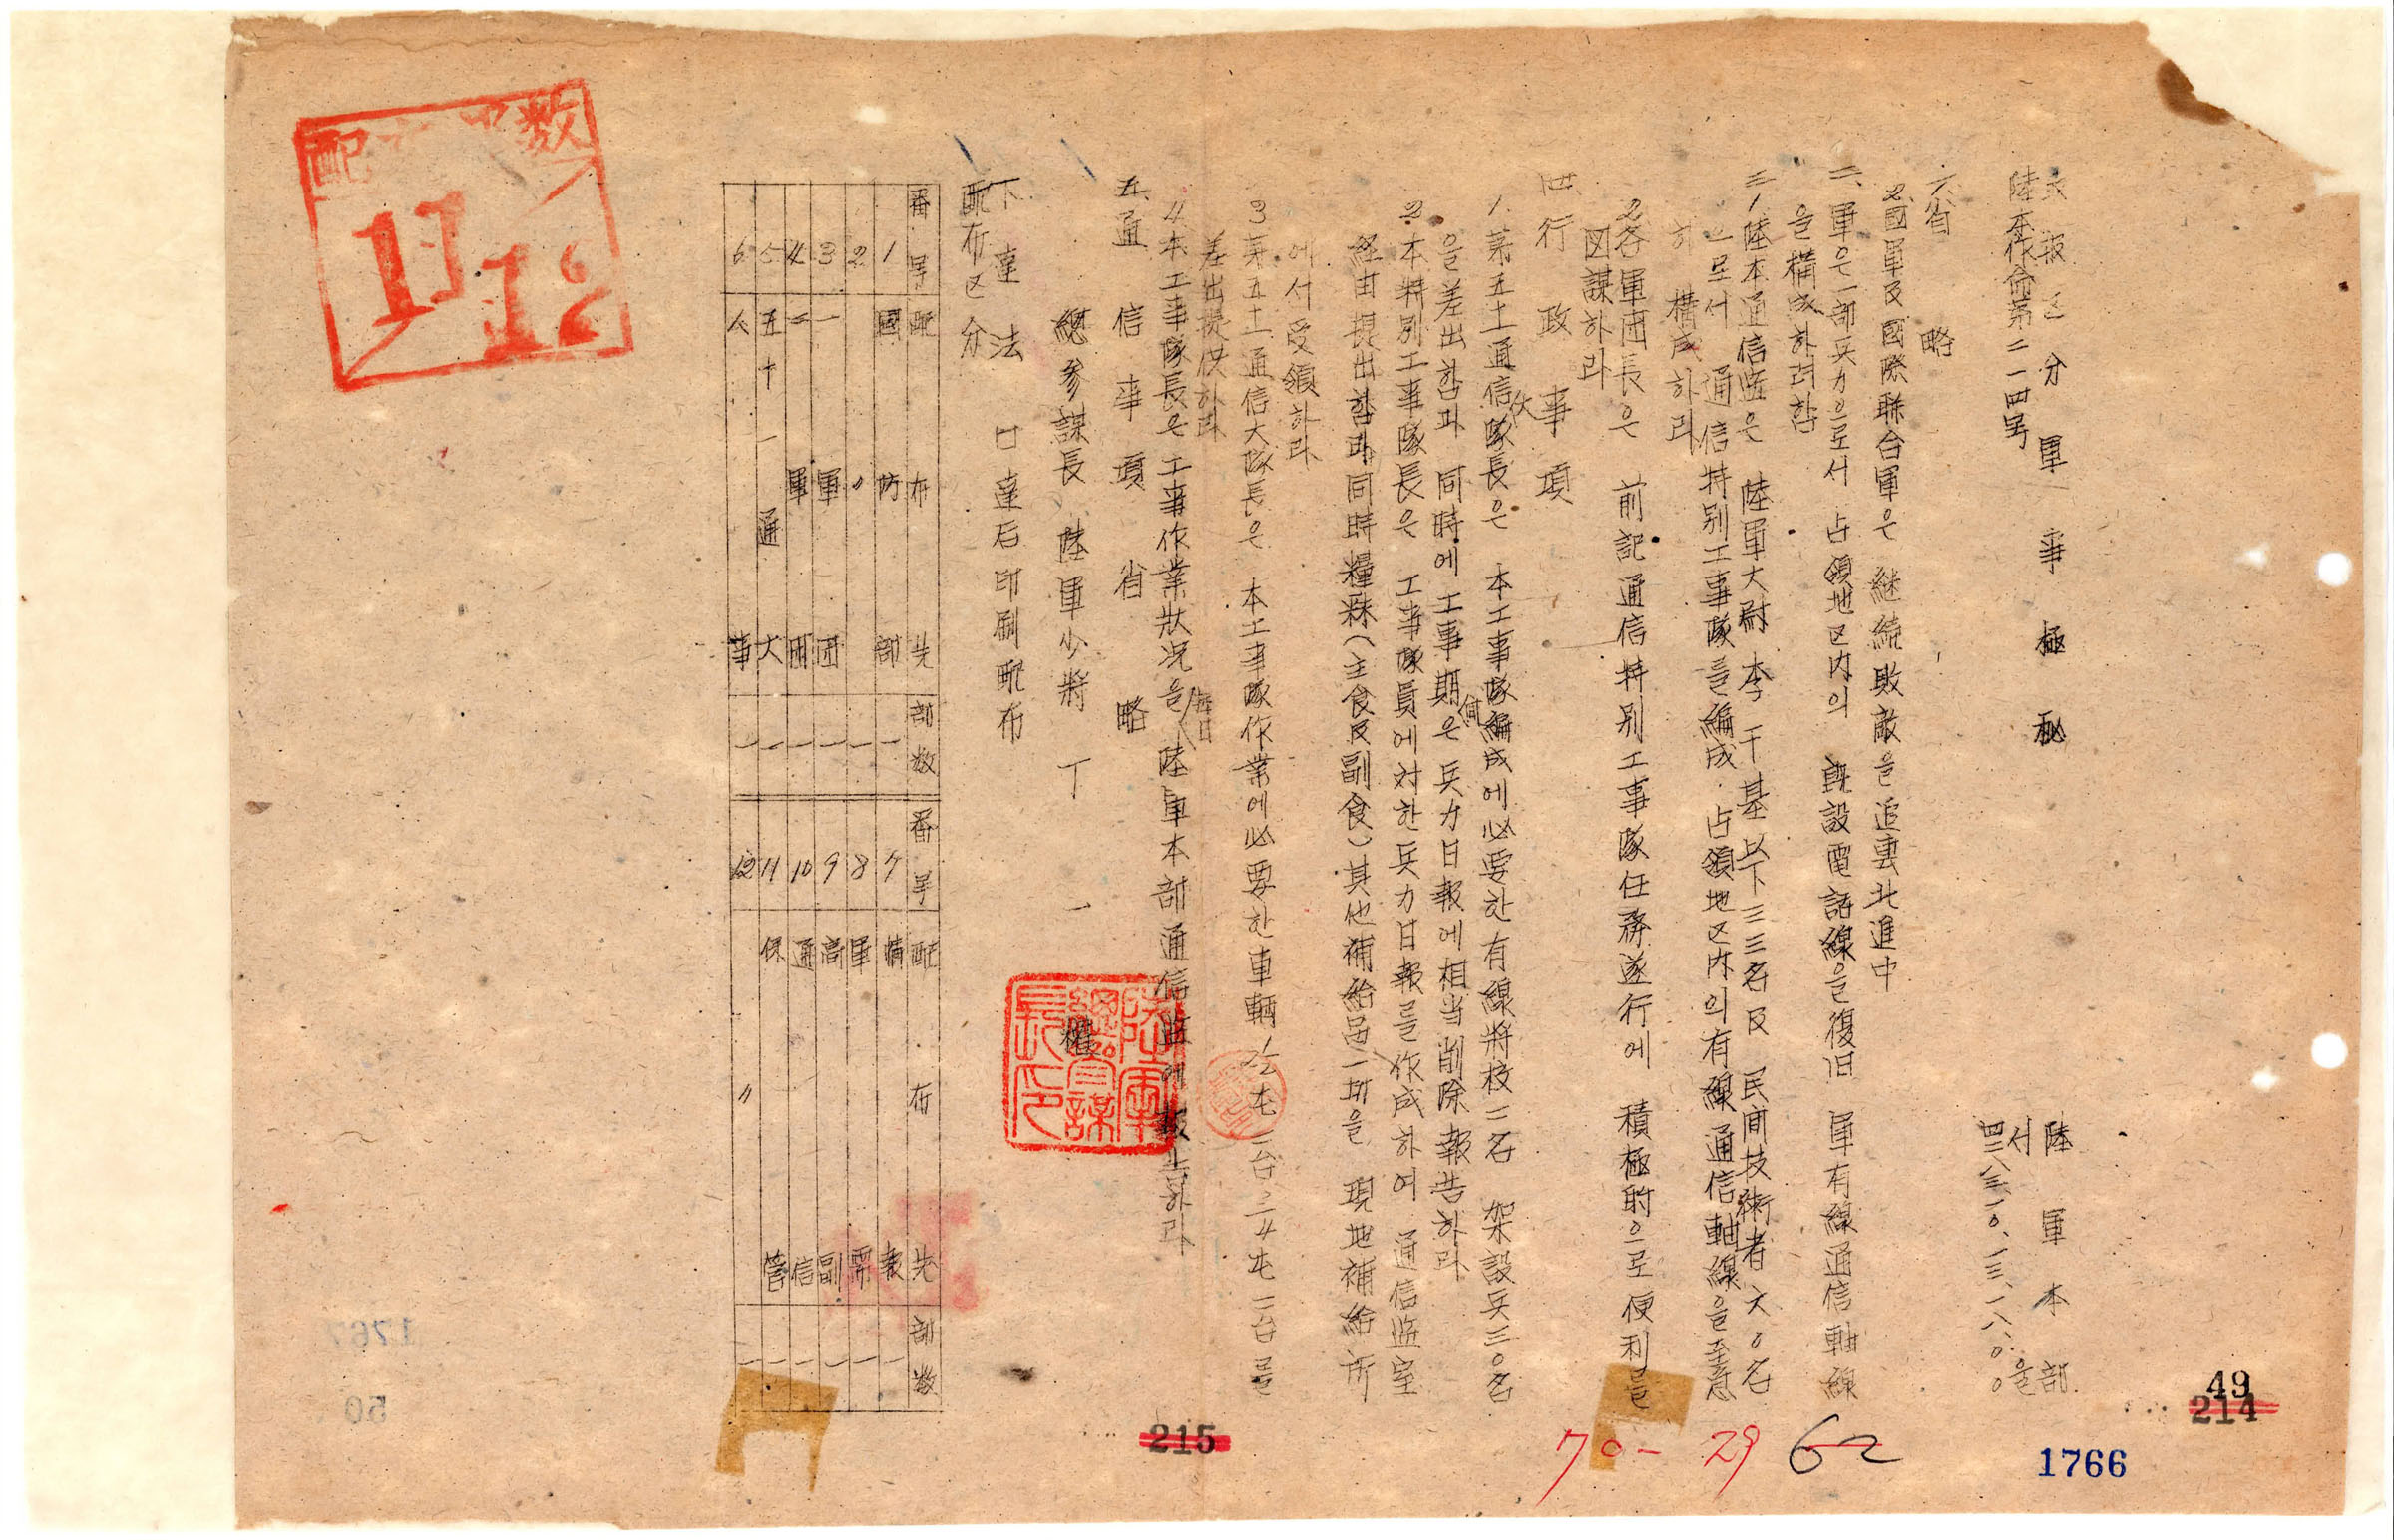 陸本作命第二一四号
区分 軍事極秘
陸軍本部
서울
四二八三、一〇、一三、一八:〇〇
一、省 略
2.國軍及國際聯合軍은 継続敗敵을 追擊北進中
二、軍은 一部兵力으로서 占領地区内의 旣設電話線을 復旧 軍有線通信軸線
을 構成하려함
三、1.陸本通信監은 陸軍大尉 李千基 以下 三三名及 民間技術者 六〇名
으로서 通信特別工事隊를 編成 占領地区内의 有線通信軸線을 至急
히 構成하라
2.各軍団長은 前記通信特別工事隊任務遂行에 積極的으로 便利를
図謀하라
四、行政事項
1.第五十一通信大隊長은 本工事隊編成에 必要한 有線將校 二名 架設兵 三〇名
을 差出함과 同時에 工事期間은 兵力日報에 相当削除報告하라
2.本特別工事隊長은 工事隊員에 対한 兵力日報를 作成하여 通信監室
経由提出함과 同時 糧秣(主食及副食)其他補給品一切을 現地補給所
에서 受領하라
3.第五十一通信大隊長은 本工事隊作業에 必要한 車輛
差出提供하라
4.本工事隊長은 工事作業狀況을 每日 陸軍本部通信監에 報告하라
五、通信事項 省略
總參謀長 陸軍少將 丁一權
陸軍總參謀長印
下達法 口達后印刷配布
配布区分
番号 配布先 部数 番号 配布先 部数
1 國防部 一 7 情報 一
2 〃 一 8 軍需 一
3 一軍団 一 9 高副 一
4 二軍団 一 10 通信 一
5 五十一通大 一 11 保管 一
6 人事 一 12 〃 一
配 数
11 12
215
70-29
62
49
214
1766